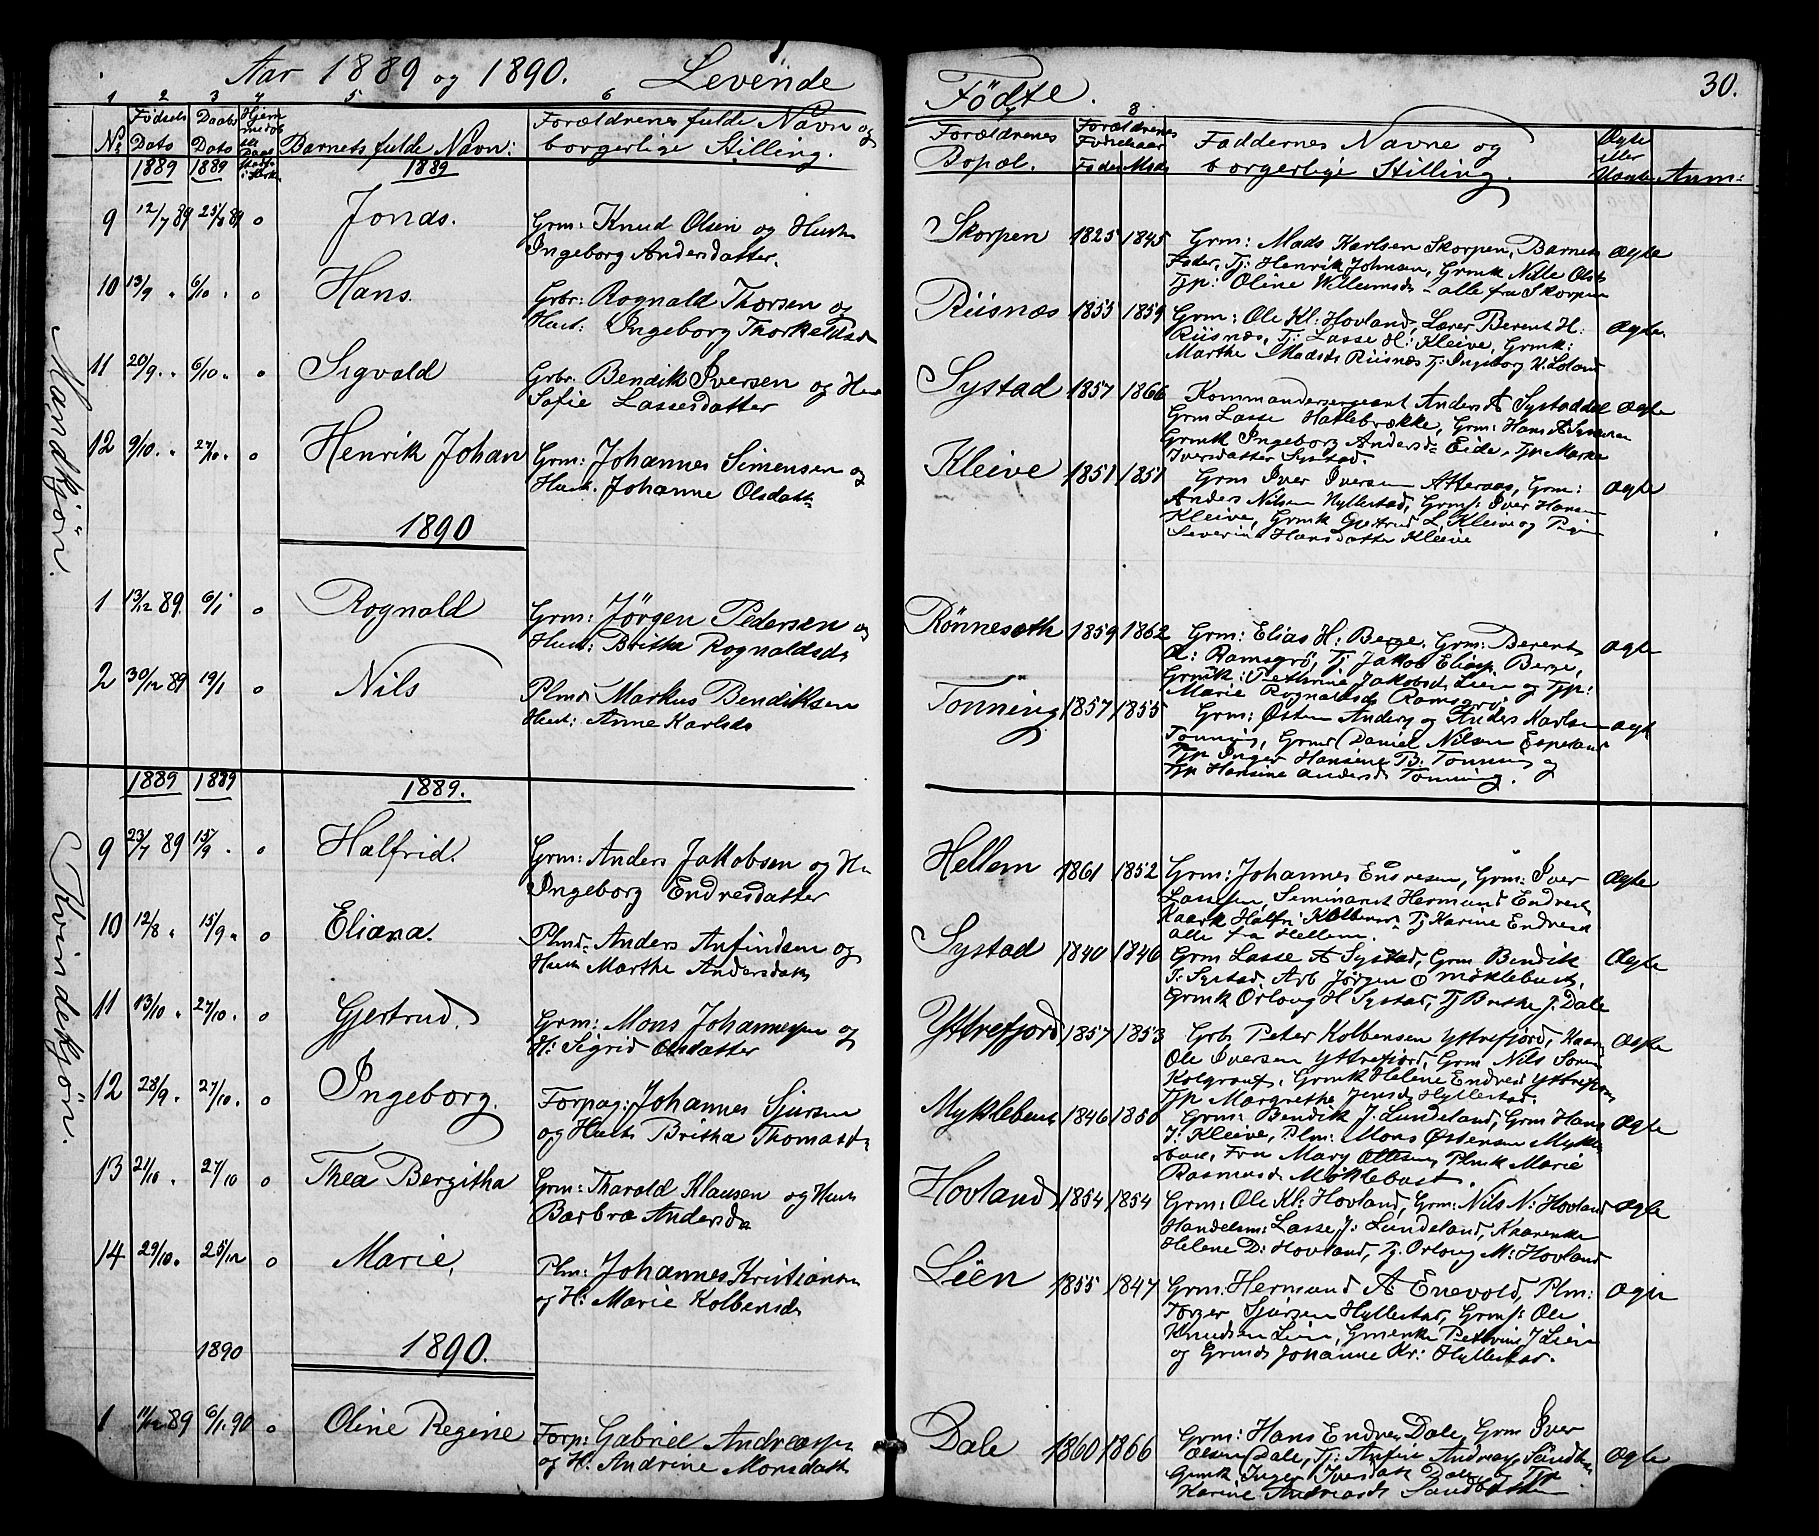 Aar 1889 og 1890. Levende
1 2 3 4 5 6
No Fødsels Dato Daabs Dato Barnets fulde Navn: Forældrenes fulde Navn og
borgerlige Stilling.
1889 1889 1889
Mandkjön.
9 12/7 89 25/8 89 o Jonas. Grm: Knud Olsen og Hust
Ingeborg Andersdatter.
10 13/9 " 6/10 " o Hans. Grbr: Rognald Thorsen og
Hust: Ingeborg Thorkeldsd
11 20/9 " 6/10 " o Sigvald Grbr: Bendik Iversen og Hu
Sofie Lassesdatter
12 9/10 " 27/10 " o Henrik Johan Grm: Johannes Simensen og
Hust. Johanne Olsdatt
1890
1 13/12 89 6/1 o Rognald Grm: Jörgen Pedersen og
Hust: Britha Rognaldsd
2 30/12 89 19/1 o Nils Plmd: Markus Bendiksen
Hust: Anne Karlsd
1889 1889 1889.
Kvindekjön.
9 23/7 89 15/9 " o Halfrid. Grm: Anders Jakobsen og Hu
Ingeborg Endresdatter
10 12/8 " 15/9 " o Eliana. Plmd: Anders Anfindsen og
Hust Marthe Andersdatt
11 13/10 " 27/10 " o Gjertrud. Grm: Mons Johannessen og
H: Sigrid Olsdatter
12 28/9 " 27/10 " o Ingeborg. Forpag: Johannes Sjursen
og Hust Britha Thomasd
13 21/10 " 27/10 o Thea Bergitha Grm: Tharald Klausen og Hust
Barbra Andersda
14 29/10 " 25/12 o Marie. Plm: Johannes Kristians
og H: Marie Kolbensd
1890 1890.
1 11/12 89 6/1 90 o Oline Regine Forp: Gabriel Andreass
og H: Andrine Monsdatt
Födte. 30.
8
Forældrenes
Bopæl. Forældrenes Fødselsaar
Fader Moder Faddernes Navne og
borgerlige Stilling. Ægte eller Uægte Anm:
Skorpen 1825 1845 Grm: Mads Karlsen Skorpen, Barnets Ægte
Fader, Tj: Henrik Johnsen, Grmk Nille Olsd
Tjp: Oline Willumsd - alle fra Skorpen
Riisnæs 1855 1859 Grm: Ole Kl: Hovland, Lærer Berent H: Ægte
Riisnæs, Tj: Lasse H: Kleive, Grmk:
Marthe Madsd Riisnæs Tj: Ingeborg
Systad 1857 1866 Kommandersergeant Anders A Systaddal Ægte
Grm Lasse Hatlebrække, Grm: Hans A
Grmk Ingeborg Andersd Eide, Tjp Marka
Iversdatter Systad.
Kleive 1851 1851 Grm Iver Iversen Atteraas, Grm: Ægte
Anders Nilsen Hyllestad, Grms: Iver Hansen
Kleive, Grmk Gjertrud L. Kleive og Pige
Severine Hansdatter Kleive
Rönneseth 1859 1862 Grm: Elias H: Berge, Grm: Berent Ægte
A: Ramsgrö, Tj Jakob Eliass Berge,
Grmk: Pethrine Jakobsd Lien og Tjp:
Marie Rognaldsd Ramsgrö
Tonning 1857 1855 Grm: Østen Anders og Anders Karlsen Ægt
Tonning, Grms Daniel Nilsen Espeland
Tjp Inger Hansene B: Tonning og
Tjp Hansine Andersd Tonning.
Hellem 1861 1852 Grm: Johannes Endresen, Grm: Iver Ægte
Lassesen, Seminarist Hermund Endresen
Kaark Halfri Kolbens Tj Karine Endresd
alle fra Hellem.
Systad 1840 1846 Grm Lasse A Systad, Grm Bendik Ægte
I: Systad, Arb Jørgen O Möklebust,
Grmk Orloug H Systad, Tj Brithe J. Dale
Yttrefjord 1857 1853 Grb Peter Kolbensen Yttrefjörd, Kaar Ægte
Ole Iversen Yttrefjord, Grm Nils Soren
Kolgrout, Grmk Helene Endresd Yttrefjor
Tjp Margrethe Jensd Hyllestad.
Myklebust 1846 1850 Grm: Bendik J. Lundeland, Grm Hans Ægte
J: Kleive, Plm: Mons Østensen Mykle
bust, Fru Mary Ottesen, Plmk Marie
Rasmusd Möklebust.
Hovland 1854 1854 Grm: Ole Kl: Hovland, Grm: Nils N: Hovland Ægte
Handelsm: Lasse J: Lundeland, Kaarenke
Helene D: Hovland, Tj. Orloug M: Hovland
Lien 1855 1847 Grm: Hermund A Enevold, Plm: Ægte
Torger Sjursen Hyllestad, Grms: Ole
Knudsen Lien, Gmenke Pethrine J Lien
og Grmds Johanne Kr: Hyllestad.
Dale 1860 1866 Grm: Hans Endres Dale, Grm Iver Ægte
Olsen Dale, Tj: Anfin Andreas
Grmk Inger Iversdatt Dale og Tjp
Karine Andreasd